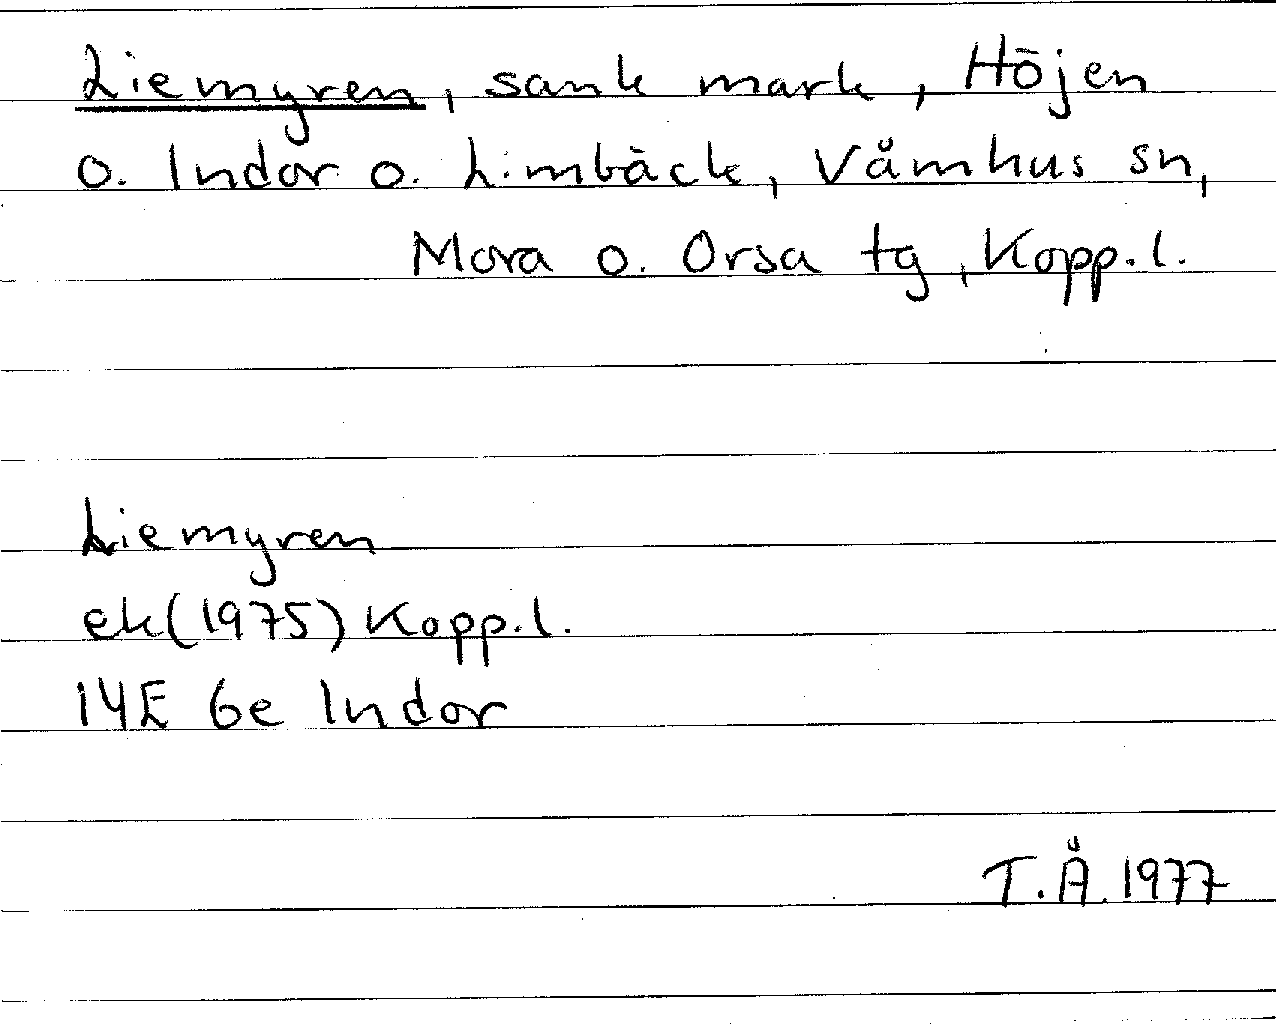 Liemyren, sank mark, Höjen
o. Indor o. Limbäck, Våmhus sn,
Mora o. Orsa tg, Kopp. l.
Liemyren
ek (1975) Kopp. l.
14E 6e Indor
T.Å. 1977